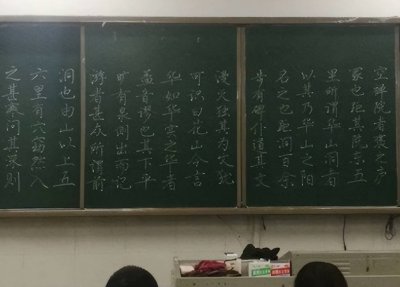 空禅院者褒之庐
冢也距其院东五
里所谓华山洞者
以其乃华山之阳
名之也距洞百余
步有碑仆道其文
漫灭独其为文犹
可识曰花山今言
华如华实之华者
盖音谬也其下平
旷有泉侧出而记
游者甚众所谓前
洞也由山以上五
六里有穴窈然入
之甚寒问其深则